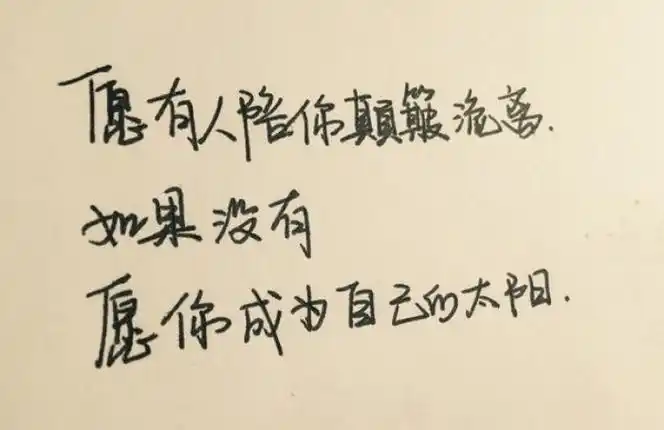 愿有人陪你颠簸流离.
如果没有
愿你成为自己的太阳.